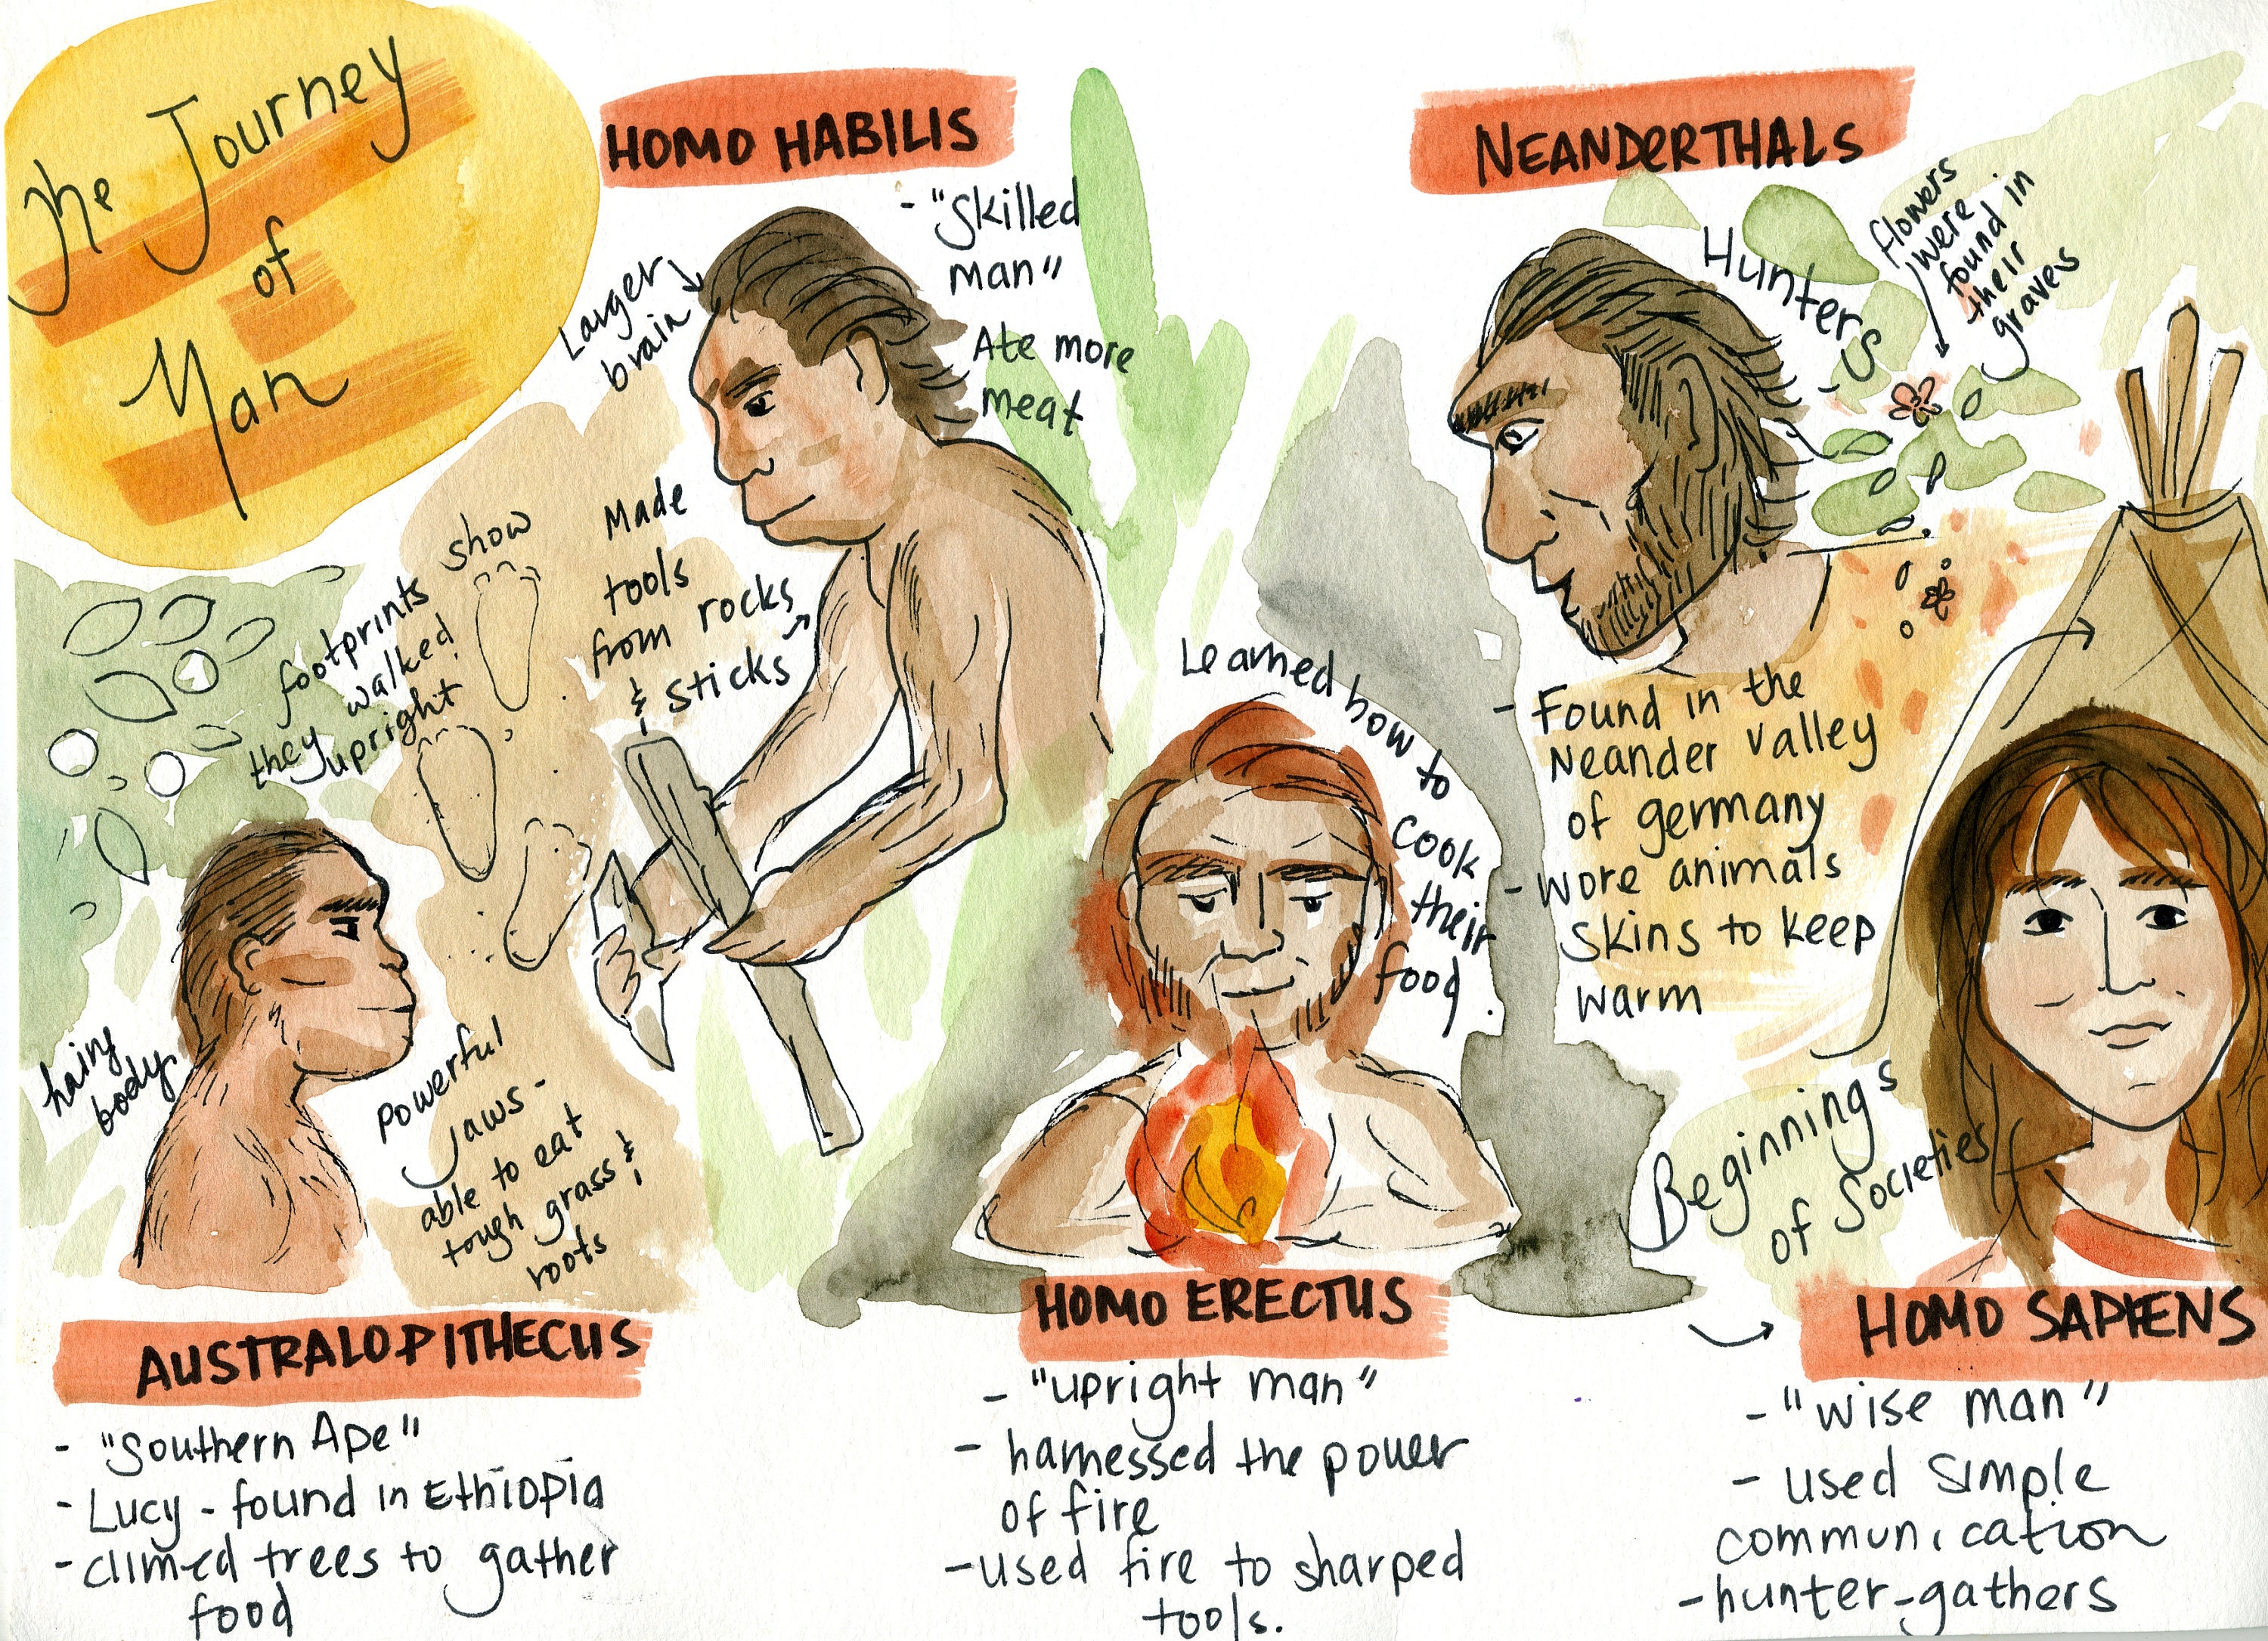 The Journey
of
Man
HOMO HABILIS
- "Skilled
man"
Ate more
meat
Larger
brain
Made
tools
from rocks
& sticks
NEANDERTHALS
Hunters
flowers
were
found in
their
graves
- Found in the
Neander Valley
of germany
- wore animals
skins to keep
warm
footprints show
they walked
upright
hairy
body
powerful
jaws -
able to eat
tough grass &
roots
AUSTRALOPITHECUS
- "Southern Ape"
- Lucy - found in Ethiopia
- climed trees to gather
food
Learned how to
cook
their
food.
HOMO ERECTUS
- "upright man"
- harnessed the power
of fire
- used fire to sharped
tools.
Beginnings
of Societies
HOMO SAPIENS
- "wise man"
- used simple
communication
- hunter-gathers